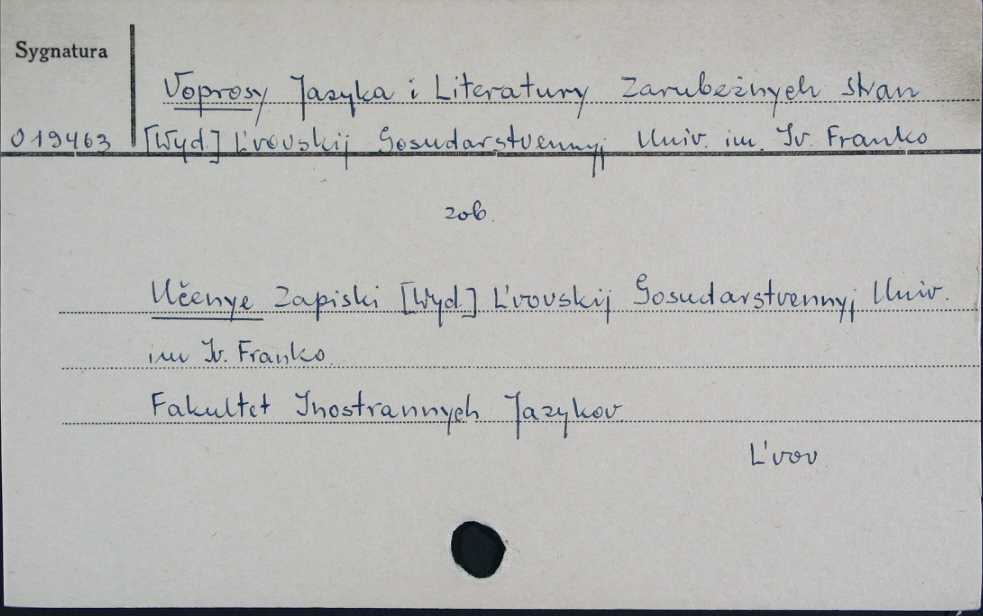 Sygnatura
Voprosy Jazyka i Literatury Zarubežnych stran
019463 [Wyd.] L'vovskij Gosudarstvennyj Univ. im. Iv. Franko
zob.
Učenye Zapiski [Wyd.] L'vovskij Gosudarstvennyj Univ.
im Iv. Franko.
Fakultet Inostrannych Jazykov.
L'vov